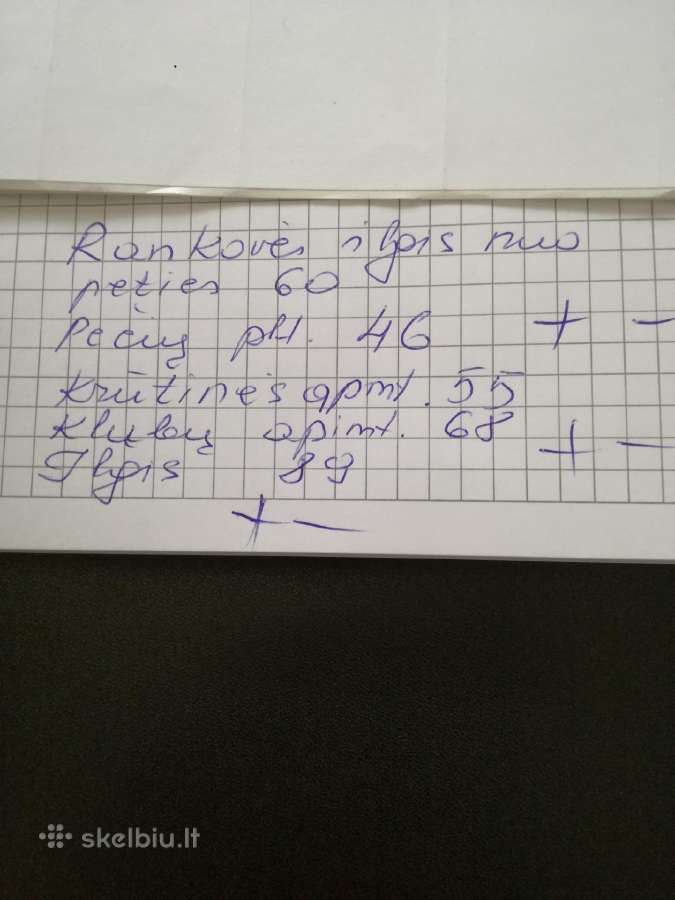 Rankovės ilgis nuo
peties 60
Pečių pl. 46 + -
Krūtinės apmt. 55
Klubų apimt. 68 + -
Ilgis 89
+ -
skelbiu.lt